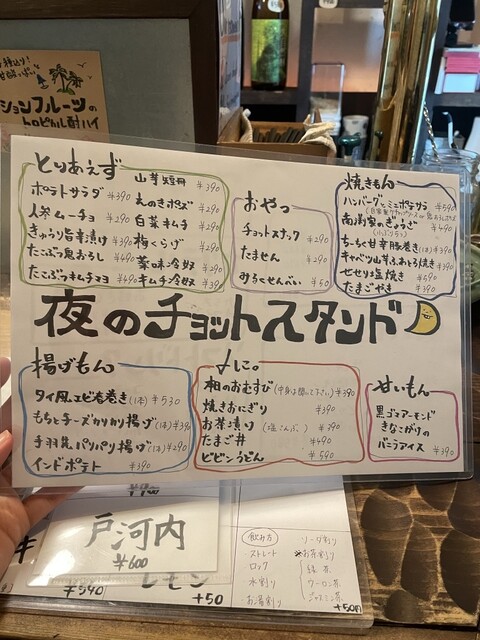 ションフルーツの
トロピカル酎ハイ
とりあえず
ポテトサラダ ¥390
人参ムーチョ ¥290
きゅうり旨辛漬け ¥390
たこぶつ鬼おろし ¥490
たこぶつキムチマヨ ¥490
山芋短冊 ¥390
えのきポン酢 ¥290
白菜キムチ ¥390
梅くらげ ¥290
薬味冷奴 ¥290
キムチ冷奴 ¥390
おやつ
チョットスナック ¥290
たません ¥290
みるくせんべい ¥50
焼きもん
ハンバーグとミニポテサラ ¥590
南渕家のぎょうざ ¥490
ちーちく甘辛豚巻き(1本) ¥390
キャベツ山芋ふわとろ焼き ¥390
せせり塩焼き ¥690
たまごやき ¥390
夜のチョットスタンド
揚げもん
タイ風エビ春巻き(1本) ¥530
もちとチーズカリカリ揚げ(1本) ¥390
手羽先パリパリ揚げ(1本) ¥290
インドポテト ¥390
よしこ。
相のおむすび(中身は聞いて下さい) ¥390
焼きおにぎり ¥390
お茶漬け(塩こんぶ) ¥290
たまご丼 ¥490
ビビンうどん ¥590
甘いもん
黒ゴマアーモンド
きなこがけの
バニラアイス ¥390
戸河内
¥600
¥540
レモン
+50
飲み方
・ストレート
・ロック
・水割り
・お湯割り
・ソーダ割り
・お茶割り
緑茶
ウーロン茶
ジャスミン茶
+50円